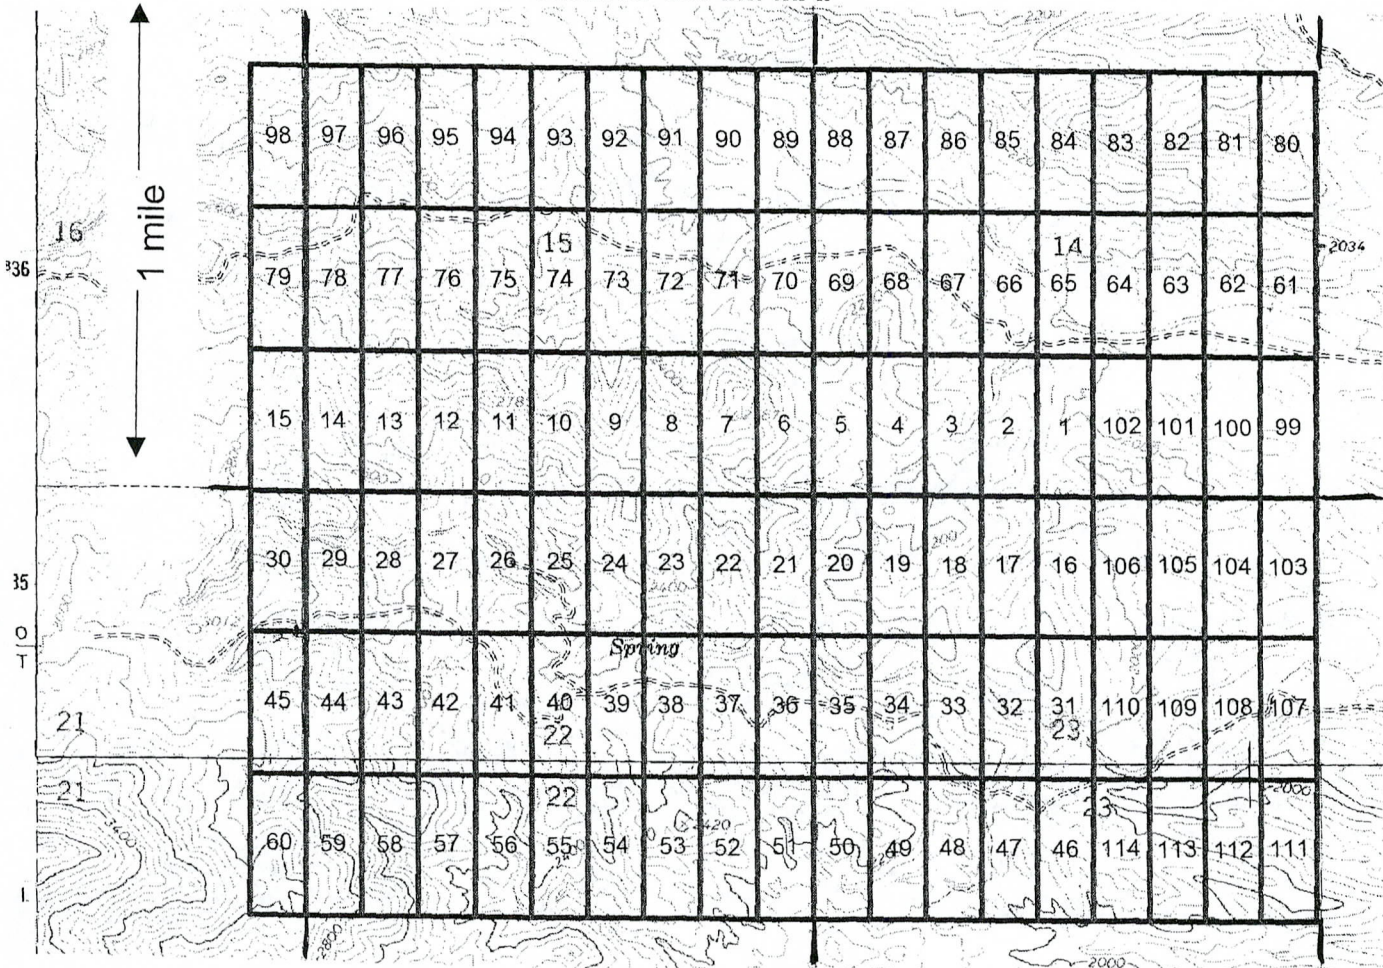 2200
98 97 96 95 94 93 92 91 90 89 88 87 86 85 84 83 82 81 80
1 mile
16
15
14
2034
336
79 78 77 76 75 74 73 72 71 70 69 68 67 66 65 64 63 62 61
15 14 13 12 11 10 9 8 7 6 5 4 3 2 1 102 101 100 99
30 29 28 27 26 25 24 23 22 21 20 19 18 17 16 106 105 104 103
35
2400
3012
O
T
Spring
45 44 43 42 41 40 39 38 37 36 35 34 33 32 31 110 109 108 107
21
22
23
21
22
23
2000
3400
2420
60 59 58 57 56 55 54 53 52 51 50 49 48 47 46 114 113 112 111
2800
2000